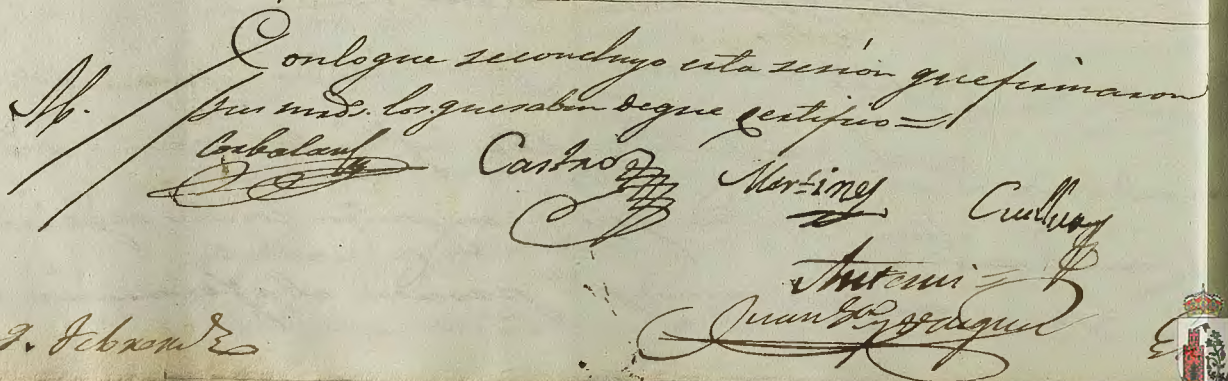 Conloque seconcluyo esta sesion quefirmaron
M. sus mrds. los quesaben deque certifico =
Corbalan Castro Martinez Cuellar
Antemi =
Juan
Febrero de